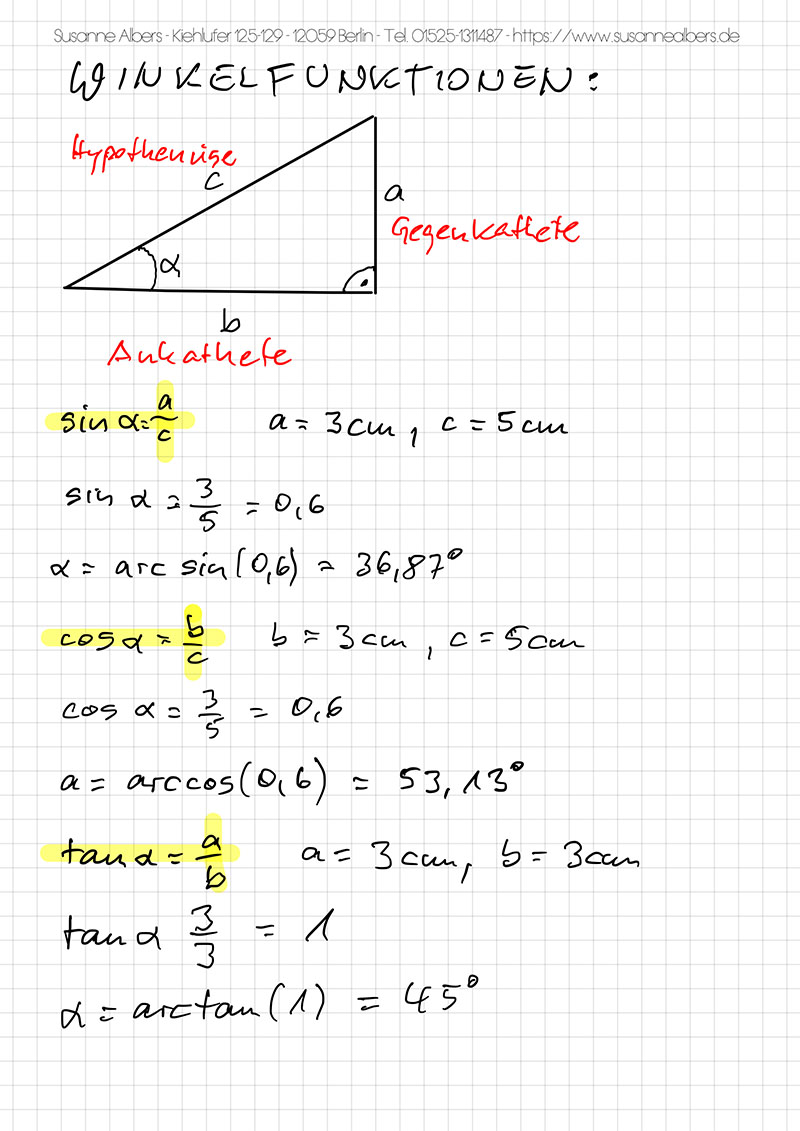 Susanne Albers - Kiehlufer 125-129 - 12059 Berlin - Tel. 01525-1311487 - https://www.susannealbers.de
WINKELFUNKTIONEN:
Hypothenuse
c
a
Gegenkathete
α
b
Ankathete
sin α = a/c a = 3cm, c = 5cm
sin α = 3/5 = 0,6
α = arc sin(0,6) = 36,87°
cos α = b/c b = 3cm, c = 5cm
cos α = 3/5 = 0,6
a = arccos(0,6) = 53,13°
tan α = a/b a = 3cm, b = 3cm
tan α 3/3 = 1
α = arctan(1) = 45°